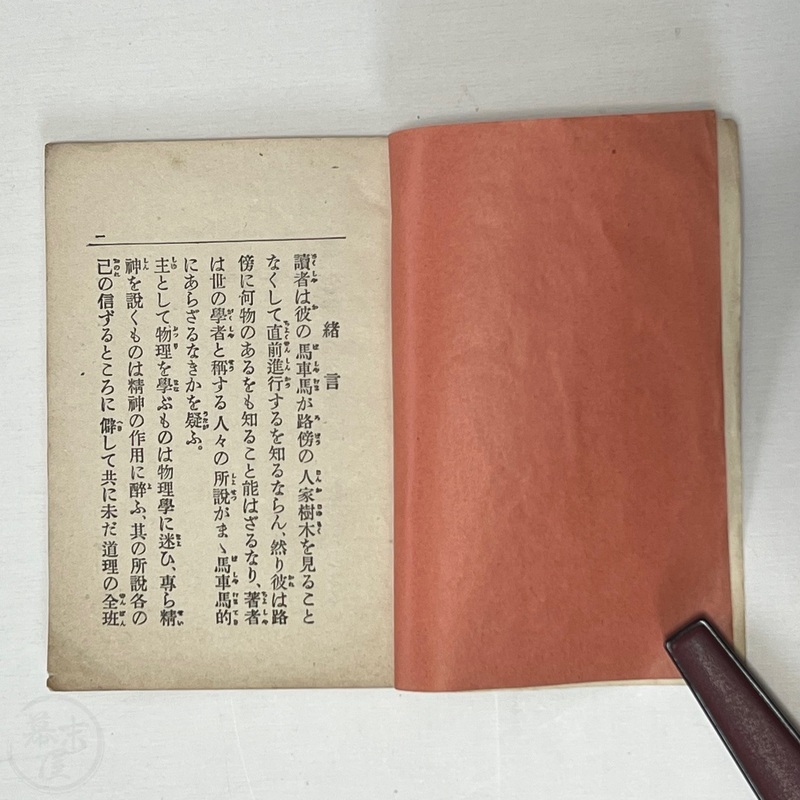 緒言
讀者は彼の馬車馬が路傍の人家樹木を見ること
なくして直前進行するを知るならん、然り彼は路
傍に何物のあるをも知ること能はざるなり、著者
は世の學者と稱する人々の所說がまゝ馬車馬的
にあらざるなきかを疑ふ。
主として物理を學ぶものは物理學に迷ひ、專ら精
神を說くものは精神の作用に醉ふ、其の所說各の
己の信ずるところに僻して共に未だ道理の全班
一